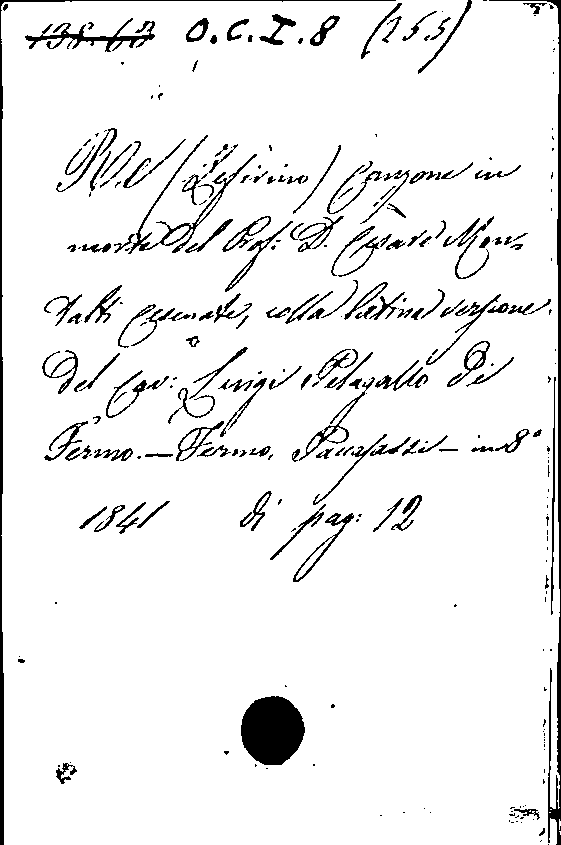 138.63 O.C.I.8 (255)
Re (Zefirino) Canzone in
morte del Prof: D. Cesare Mon-
talti Cesenate, colla latina versione
del Cav: Luigi Pelagallo di
Fermo. — Fermo, Paccasassi — in 8°
1841 di pag: 12